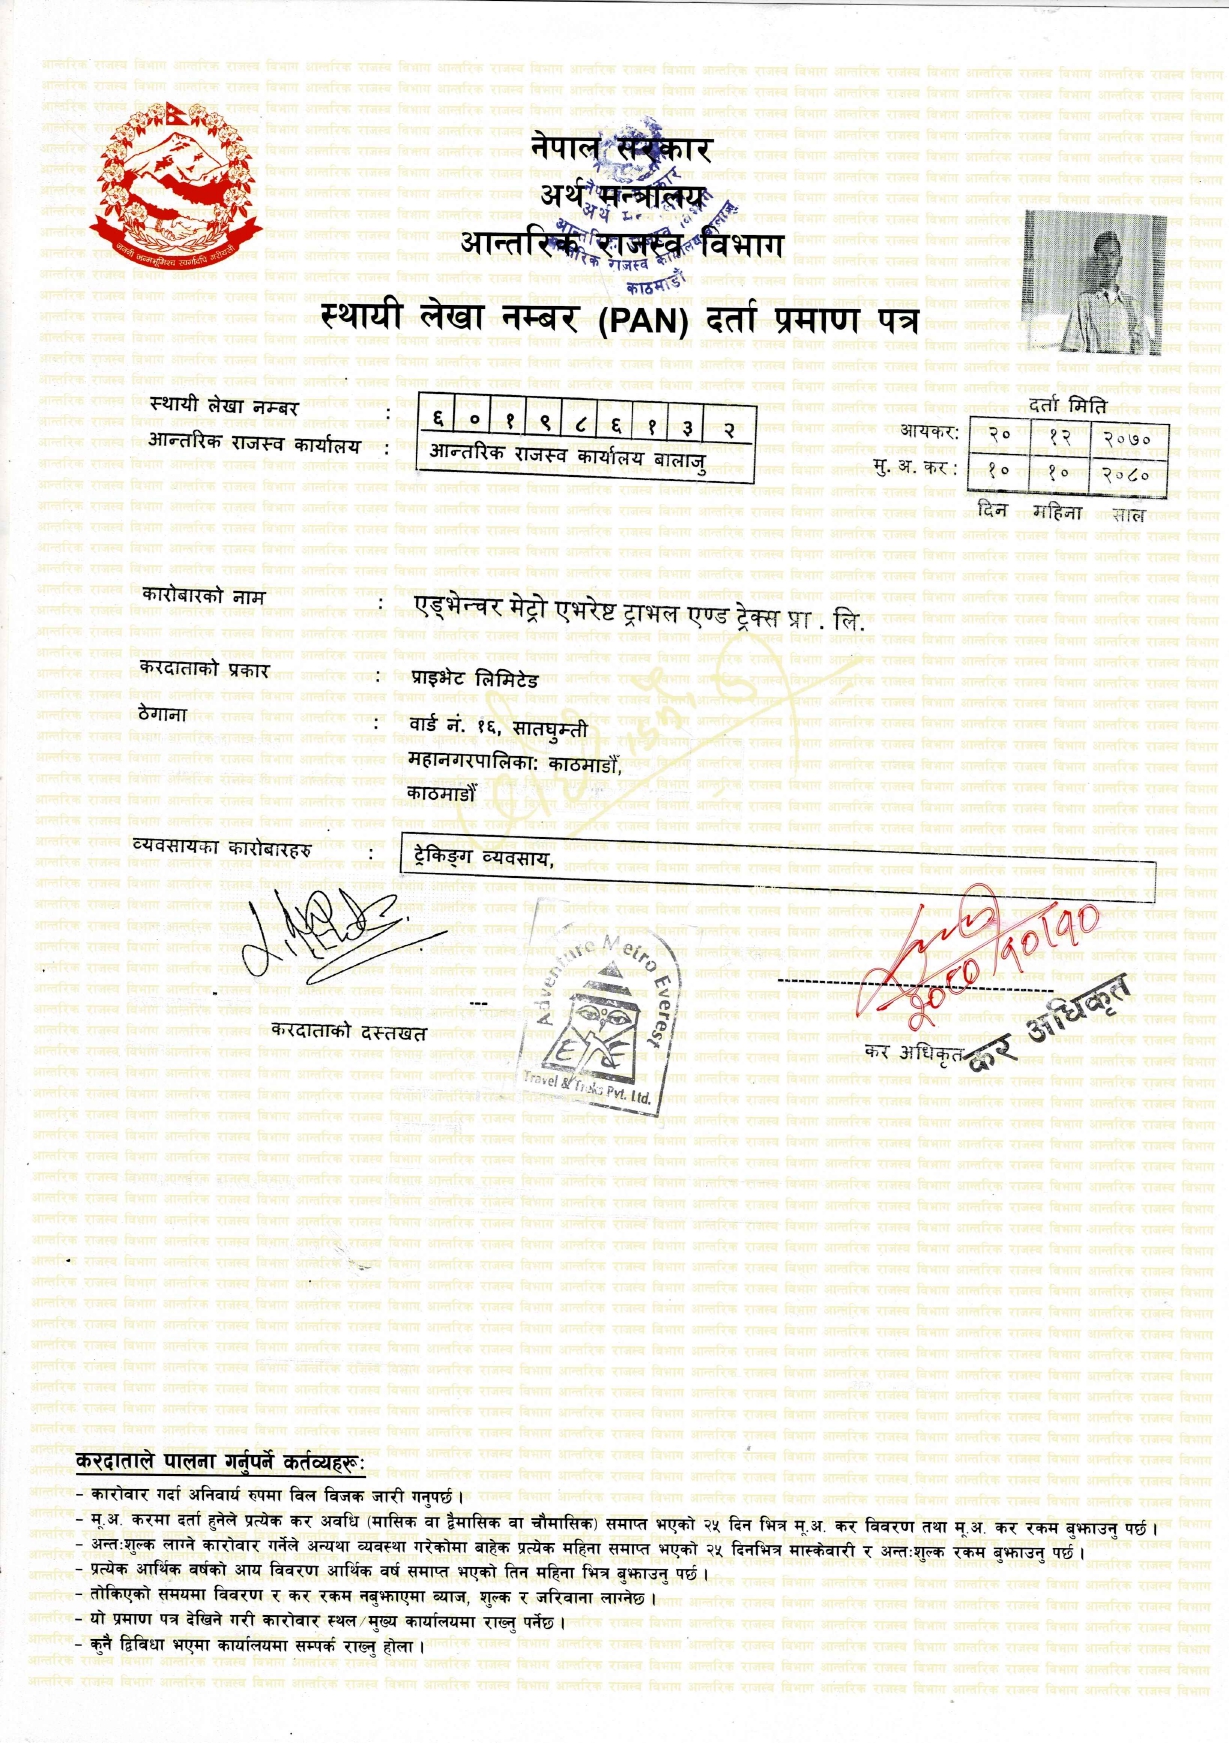 जननी जन्मभूमिश्च स्वर्गादपि गरीयसी
नेपाल सरकार
अर्थ मन्त्रालय
आन्तरिक राजस्व विभाग
काठमाडौं
स्थायी लेखा नम्बर (PAN) दर्ता प्रमाण पत्र
स्थायी लेखा नम्बर : ६ ० १ ९ ८ ६ १ ३ २
आन्तरिक राजस्व कार्यालय : आन्तरिक राजस्व कार्यालय बालाजु
दर्ता मिति
आयकर: २० १२ २०७०
मु. अ. कर : १० १० २०८०
दिन महिना साल
कारोबारको नाम : एड्भेन्चर मेट्रो एभरेष्ट ट्राभल एण्ड ट्रेक्स प्रा . लि.
करदाताको प्रकार : प्राइभेट लिमिटेड
ठेगाना : वार्ड नं. १६, सातघुम्ती
महानगरपालिका: काठमाडौँ,
काठमाडौँ
व्यवसायका कारोबारहरु : ट्रेकिङ्ग व्यवसाय,
Adventure Metro Everest
Travel & Treks Pvt. Ltd.
२०८०/१०/१०
करदाताको दस्तखत
कर अधिकृत
कर अधिकृत
करदाताले पालना गर्नुपर्ने कर्तव्यहरू:
- कारोवार गर्दा अनिवार्य रुपमा विल विजक जारी गनुपर्छ ।
- मू.अ. करमा दर्ता हुनेले प्रत्येक कर अवधि (मासिक वा द्वैमासिक वा चौमासिक) समाप्त भएको २५ दिन भित्र मू.अ. कर विवरण तथा मू.अ. कर रकम बुझाउनु पर्छ ।
- अन्त:शुल्क लाग्ने कारोवार गर्नेले अन्यथा व्यवस्था गरेकोमा बाहेक प्रत्येक महिना समाप्त भएको २५ दिनभित्र मास्केवारी र अन्त:शुल्क रकम बुझाउनु पर्छ ।
- प्रत्येक आर्थिक वर्षको आय विवरण आर्थिक वर्ष समाप्त भएको तिन महिना भित्र बुझाउनु पर्छ ।
- तोकिएको समयमा विवरण र कर रकम नबुझाएमा व्याज, शुल्क र जरिवाना लाग्नेछ ।
- यो प्रमाण पत्र देखिने गरी कारोवार स्थल/मुख्य कार्यालयमा राख्नु पर्नेछ ।
- कुनै द्विविधा भएमा कार्यालयमा सम्पर्क राख्नु होला ।